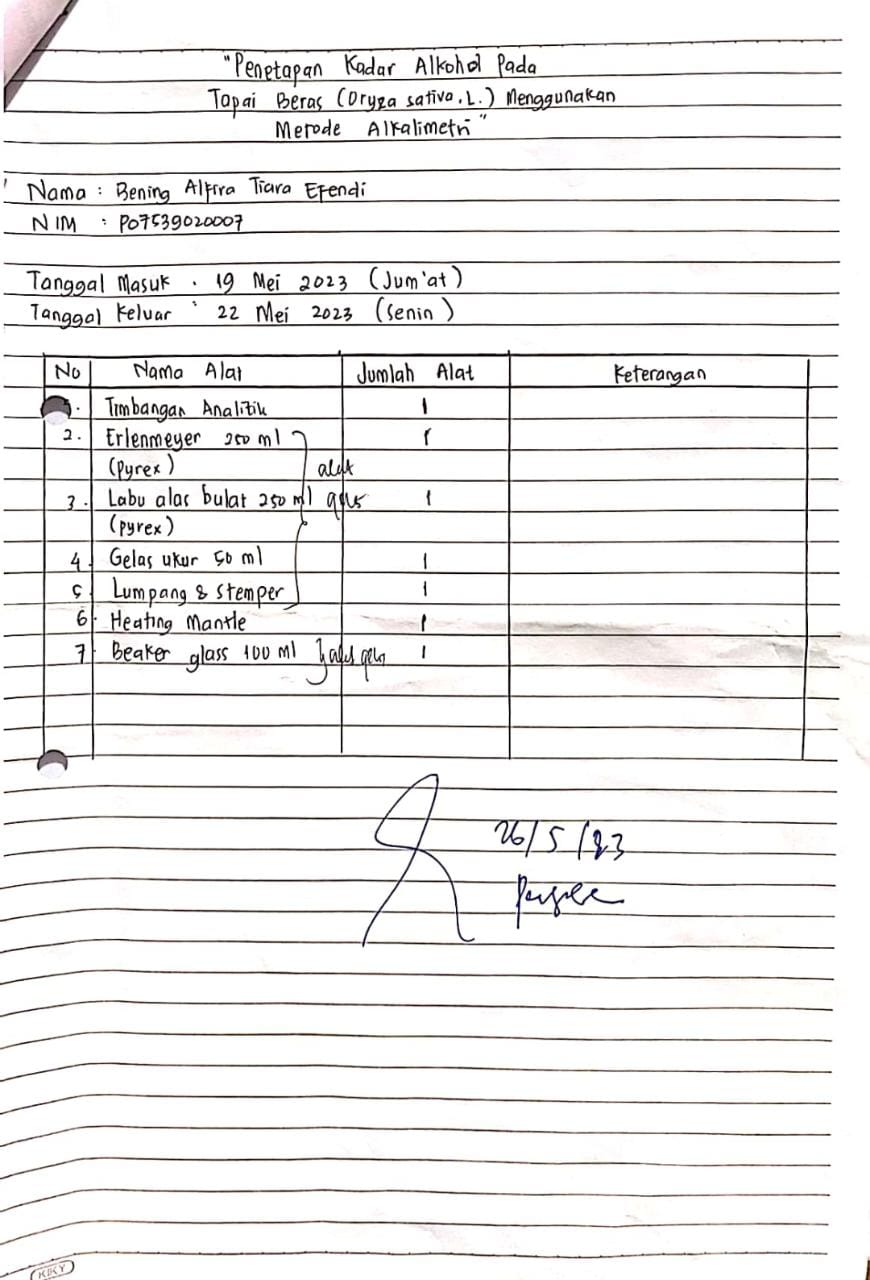 "Penetapan Kadar Alkohol Pada
Tapai Beras (Oryza sativa. L.) Menggunakan
Metode Alkalimetri"
Nama : Bening Alfira Tiara Efendi
NIM : P07539020007
Tanggal Masuk : 19 Mei 2023 (Jum'at)
Tanggal Keluar : 22 Mei 2023 (Senin)
No Nama Alat Jumlah Alat Keterangan
Timbangan Analitik 1
2. Erlenmeyer 250 ml 1
(Pyrex) alat
3. Labu alas bulat 250 ml gelas 1
(pyrex)
4. Gelas ukur 50 ml 1
5. Lumpang & Stemper 1
6. Heating Mantle 1
7. Beaker glass 100 ml 1
26/5/23
KIKY